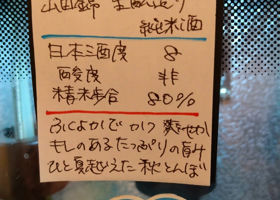 山田錦 生酛造り
純米酒
日本酒度 8
酸度 非
精米歩合 80%
ふくよかでかつ爽せわし
もしのあるたっぷりの旨汁
ひと夏越えた秋とんぼ